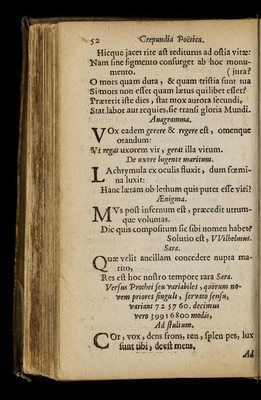 52 Crepundia Poëtica.
Hicque jacet rite ast rediturus ad ostia vitæ:
Nam sine figmento consurget ab hoc monu-
mento. ( jura?
O mors quam dura, & quam tristia sunt tua
Si mors non esset quam lætus quilibet esset?
Præterit iste dies, stat mox aurora secundi,
Stat labor aut requies, sic transi gloria Mundi.
Anagramma.
VOx eadem gerere & regere est, omenque
notandum:
Vt regat uxorem vir, gerat illa virum.
De uxore lugente maritum.
LAchrymula ex oculis fluxit, dum fœmi-
na luxit:
Hanc lætam ob lethum quis putet esse viri?
Ænigma.
MVs post infernum est, præcedit utrum-
que voluntas.
Dic quis compositum sic sibi nomen habet?
Solutio est, VVilhelmus.
Sara.
Quæ velit ancillam concedere nupta ma-
rito,
Res est hoc nostro tempore rara Sara.
Versus Prochei seu variabiles, quorum no-
vem priores singuli, servato sensu,
variant 72 5 7 60. decimus
vero 39916800 modis,
Ad stultum.
COr, vox, dens frons, ren, splen pes, lux
sunt tibi, deest mens.
Ad